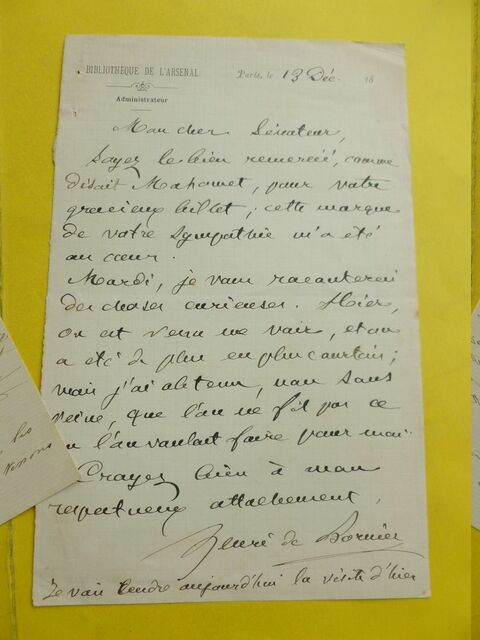 BIBLIOTHEQUE DE L'ARSENAL
Administrateur
Paris, le 13 Déc. 18
Mon cher Sénateur,
Soyez le bien remercié, comme
disait Mahomet, pour votre
gracieux billet ; cette marque
de votre sympathie m'a été
au cœur.
Mardi, je vous raconterai
des choses curieuses. Hier,
on est venu me voir, et on
a été de plus en plus courtois ;
mais j'ai obtenu, non sans
peine, que l'on ne fît pas ce
que l'on voulait faire pour moi.
Croyez bien à mon
respectueux attachement,
Henri de Bornier
Je vais rendre aujourd'hui la visite d'hier